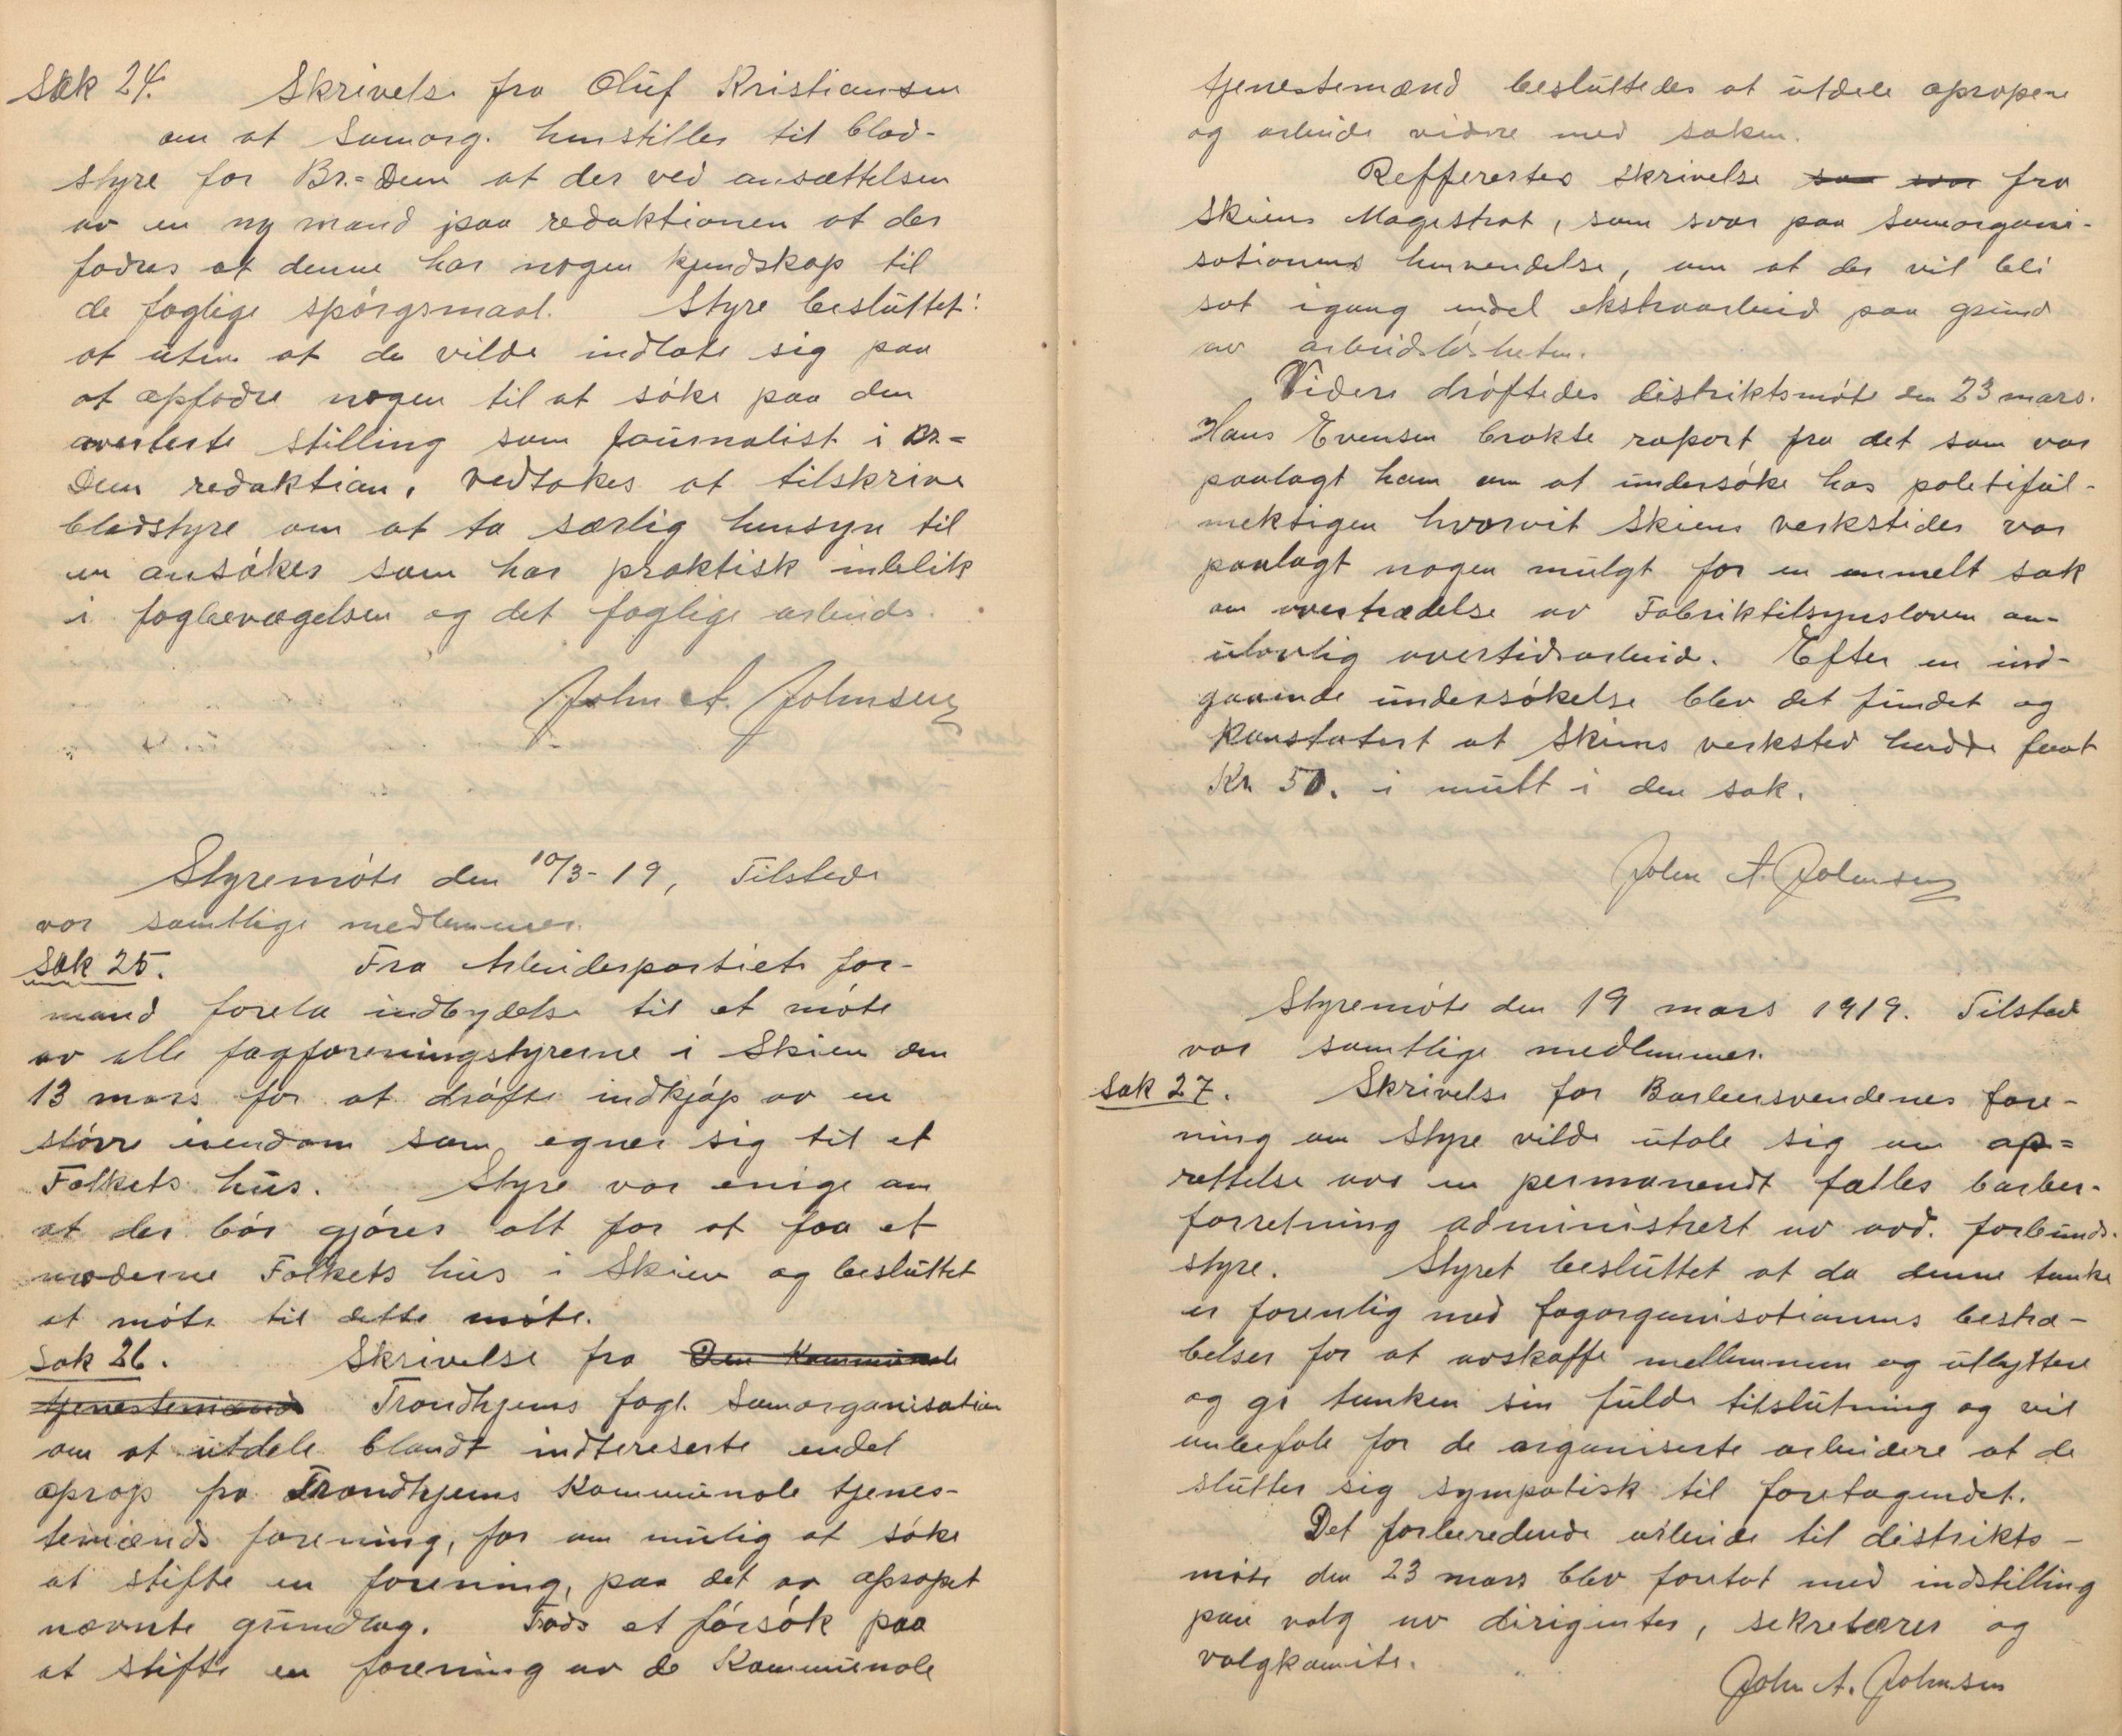 Sak 24. Skrivelse fra Oluf Kristiansen
om at Samorg. henstiller til blad-
styre for Br.-Dem at der ved ansættelsen
av en ny mand paa redaktionen at der
fodres at denne har nogen kjendskap til
de faglige spörgsmaal. Styre besluttet:
at uten at de vilde indlate sig paa
at opfodre nogen til at söke paa den
averterte stilling som journalist i Br-
Dem redaktion, vedtokes at tilskrive
bladstyre om at ta særlig hensyn til
en ansöker som har praktisk inblik
i fagbevægelsen og det faglige arbeide.
John A. Johnsen
Styremöte den 10/3-19, Tilstede
var samtlige medlemmer.
Sak 25. Fra Arbeiderpartiets for-
mand forela indbydelse til et möte
av alle fagforeningstyrerne i Skien den
13 mars for at dröfte indkjöp av en
större eiendom som egner sig til et
Folkets hus. Styre var enige om
at der bör gjöres alt for at faa et
moderne Folkets hus i Skien og besluttet
at möte til dette möte.
Sak 26. Skrivelse fra Den Kommunale
tjenestemænd Trondhjems fagl. Samorganisation
om at utdele blandt indtereserte endel
oprop fra Trondhjems Kommunale tjenes-
temænds forening, for om mulig at söke
at stifte en forening, paa det av opropet
nævnte grundlag. Tods et försök paa
at stifte en forening av de Kommunale
tjenestemænd besluttedes at utdele opropene
og arbeide vidre med saken.
Refferertes skrivelse som svar fra
Skiens Magistrat, som svar paa samorgani-
sationens henvendelse, om at der vil bli
sat igang endel ekstraarbeid paa grund
av arbeidslösheten.
Videre dröftedes distriktsmöte den 23 mars.
Hans Evensen brakte raport fra det som var
paalagt ham om at undersöke hos politiful-
mektigen hvorvit Skiens verksteder var
paalagt nogen mulgt for en anmelt sak
om overtrædelse av Fabriktilsynsloven an-
ulovlig overtidsarbeid. Efter en ind-
gaaende undersökelse blev det fundet og
Konstatert at Skiens verksted hadde faat
Kr 50. i mult i den sak.
John A. Johnsen
Styremöte den 19 mars 1919. Tilsted
var samtlige medlemmer.
Sak 27. Skrivelse for Barbersvendenes fore-
ning om Styre vilde utale sig om op-
rettelse av en permanendt fælles barber-
forretning administrert av avd. forbunds-
styre. Styret besluttet at da denne tanke
er forenlig med fagorganisationens bestræ-
belser for at avskaffe mellemmen og utbyttere
og gi tanken sin fulde tilslutning og vil
anbefale for de organiserte arbeidere at de
slutter sig sympatisk til foretagendet.
Det forberedende arbeide til distrikts-
möte den 23 mars blev foretat med indstilling
paa valg av dirigenter, sekretærer og
valgkomite.
John A. Johnsen